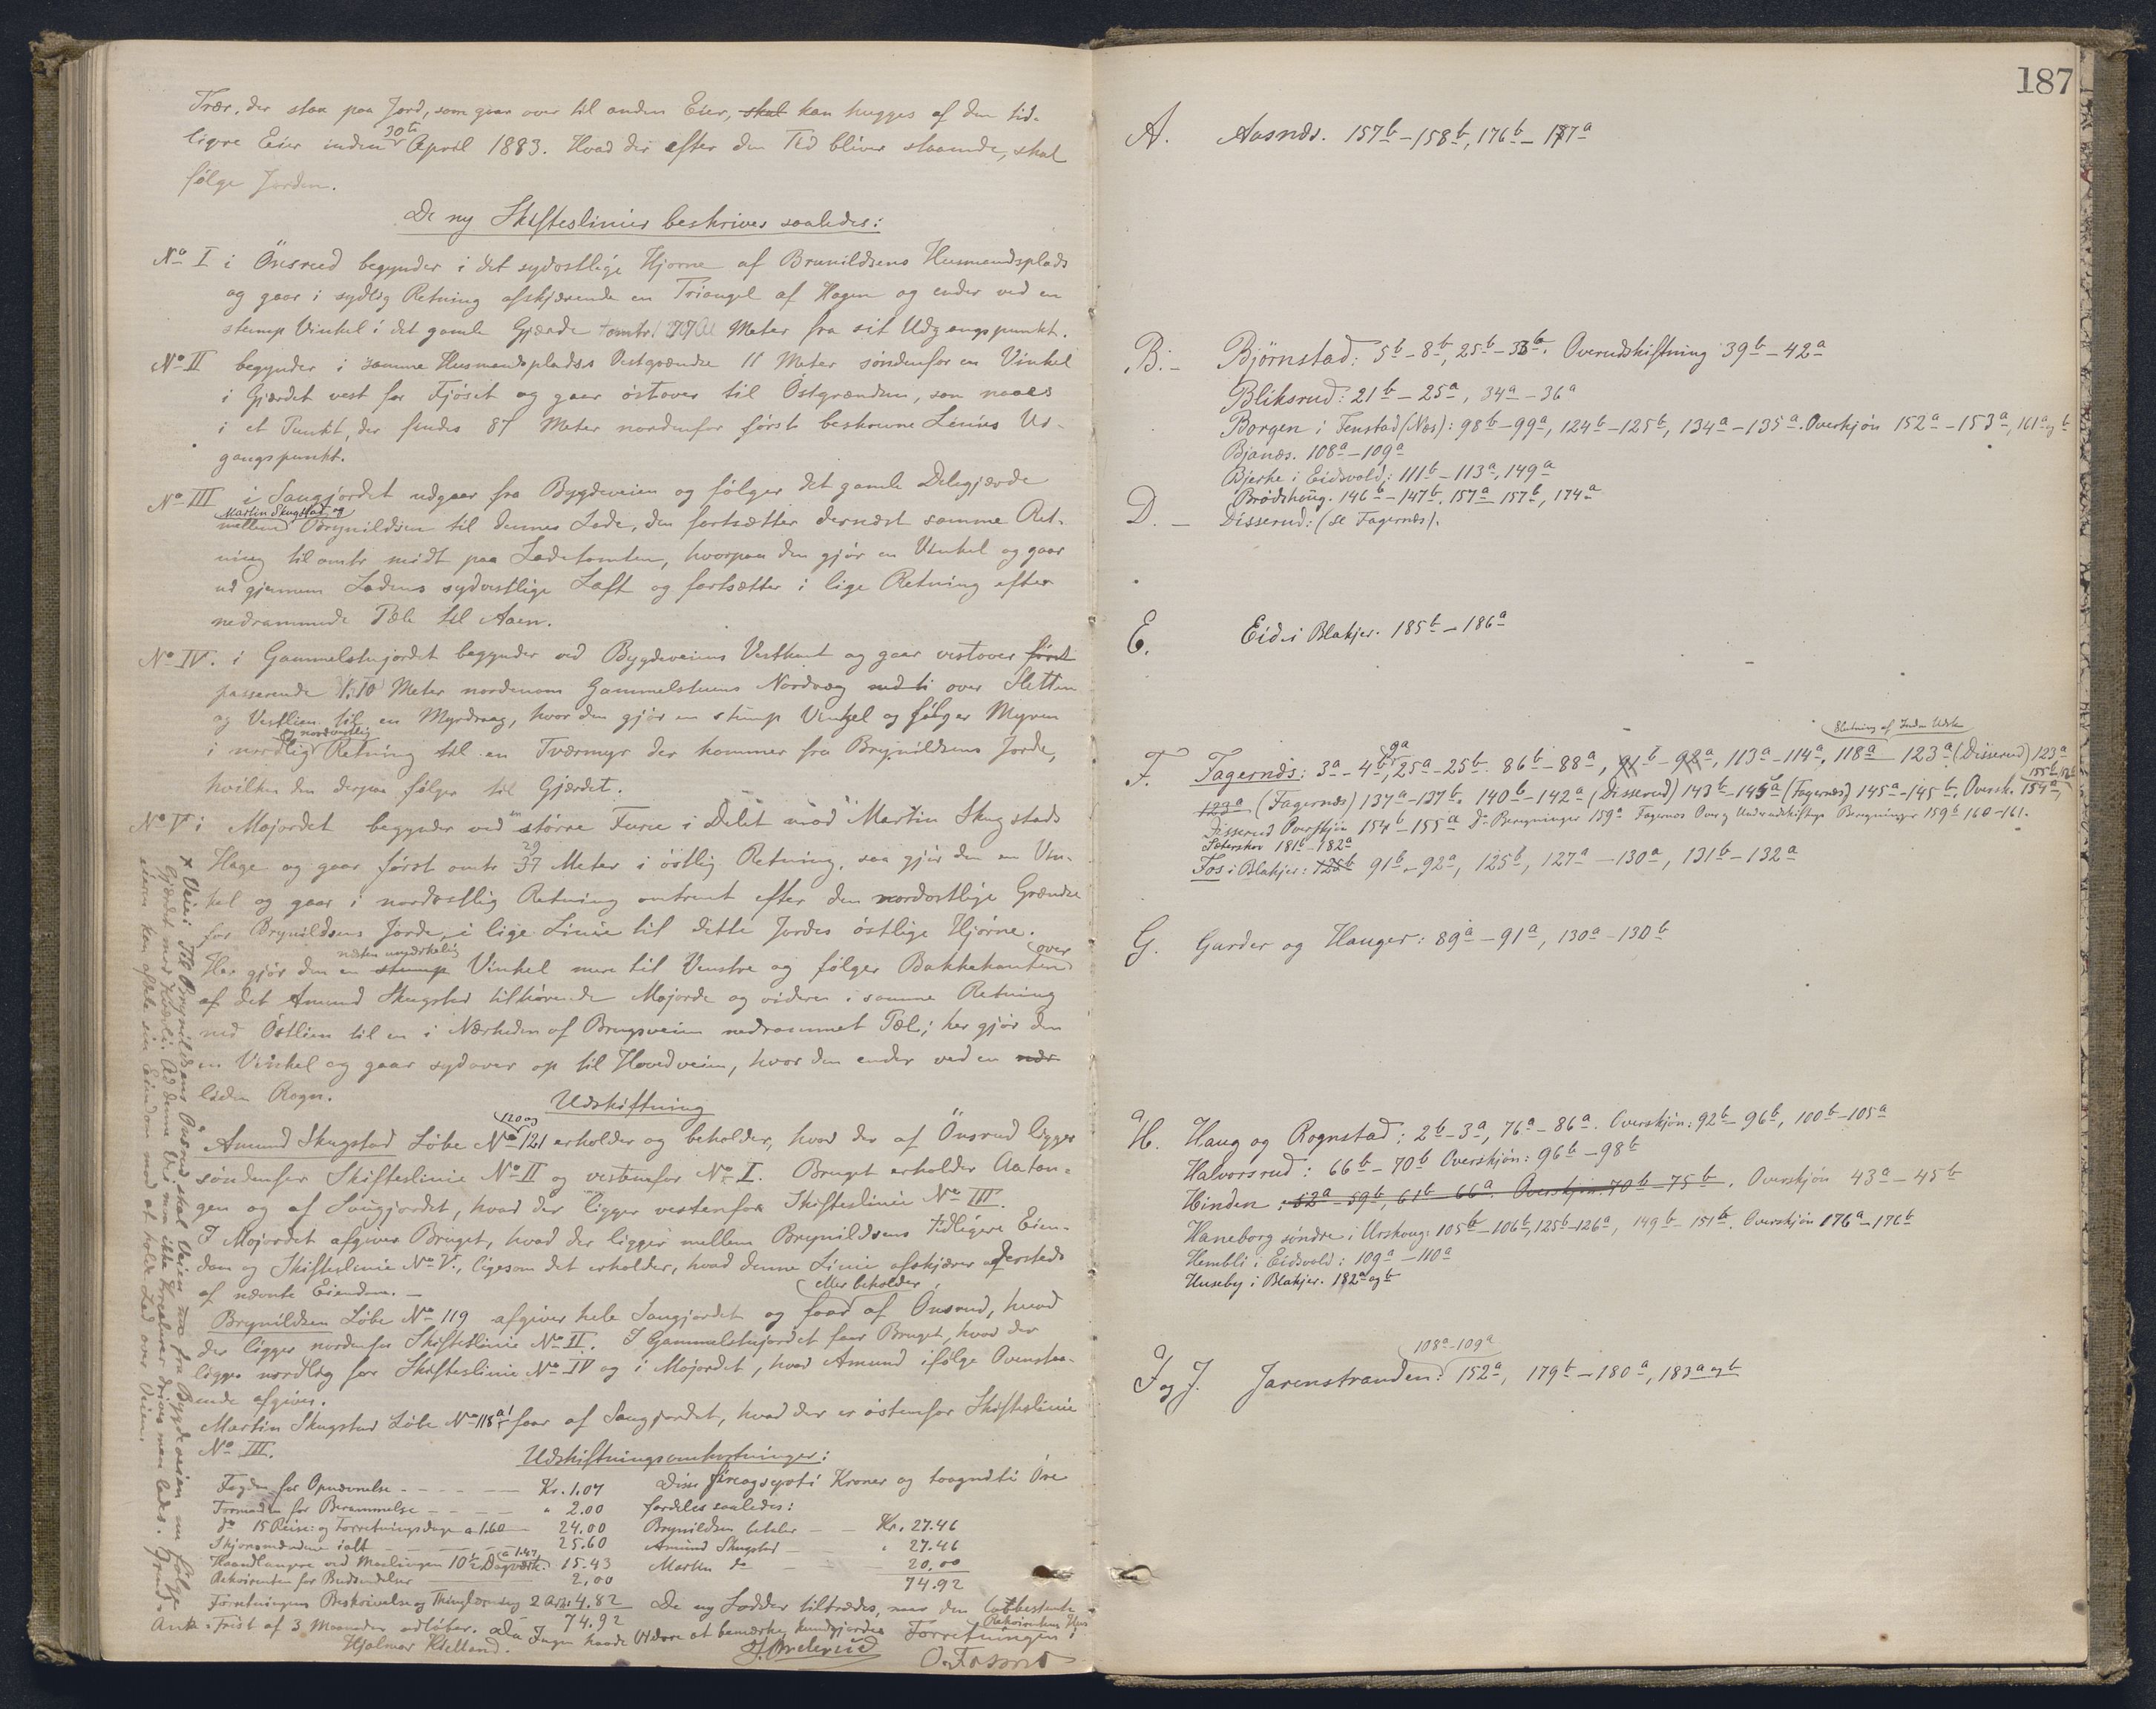 Trær, der staa paa Jord, som gaar over til anden Eier, skal kan hugges af den tid-
ligere Eier inden 30te April 1883. Hvad der efter den Tid bliver staaende, skal
følge Jorden.
De ny Skifteslinier beskrives saaledes:
No I i Önsrud begynder i det sydostlige Hjorne af Brynildsens Husmandsplads
og gaar i sydlig Retning afskjærende en Triangel af Hagen og ender ved en
stump Vinkel i det gamle Gjærde omtr. Meter fra sit Udgangspunkt.
No II begynder i samme Husmandsplads's Vestgrændse 11 Meter søndenfor en Vinkel
i Gjærdet vest for Fjöset og gaar östover til Östgrændsen, som naaes
i et Punkt, der findes 87 Meter nordenfor först beskrevne Linies Ud-
gangspunkt.
No III i Saugjordet udgaar fra Bygdeveien og fölger det gamle Delegjærde
mellem Martin Skugstad og Brynildsen til dennes Lade, den fortsætter dernæst samme Ret-
ning til omtr midt paa Ladetomten, hvorpaa den gjör en Vinkel og gaar
ud gjennem Ladens sydvestlige Laft og fortsætter i lige Retning efter
nedrammede Pæle til Aaen.
No IV. i Gammelstujordet begynder ved Bygdeveiens Vestkant og gaar vestover först
passerende 1.10 Meter nordenom Gammelstuens Nordvæg ned ti over Sletten
og Vestlien til en Myrdrag, hvor den gjör en stump Vinkel og fölger Myren
i nordlig og nordvestlig Retning til en Tværmyr der kommer fra Brynildsens Jorde,
hvilken den derpaa fölger til Gjærdet.
No V i Mojordet begynder ved en större Furu i Delet mod Martin Skugstads
Hage og gaar först omtr 37 29 Meter i östlig Retning, saa gjör den en Vin-
kel og gaar i nordostlig Retning omtrent efter den nordostlige Grændse
for Brynildsens Jorde, i lige Linie til dette Jordes östlige Hjörne.
Her gjör den en stump næsten umærkelig Vinkel mere til Venstre og fölger Bakkekanten over
af det Amund Skugstad tilhörende Mojorde og videre i samme Retning
ned Östlien til en i Nærheden af Brugsveien nedrammet Pæl; her gjör den
en Vinkel og gaar sydover op til Hovedveien, hvor den ender ved en nær
liden Rogn.
Udskiftning
Amund Skugstad Löbe No 120 og 121 erholder og beholder, hvad der af Önsrud ligger
söndenfor Skifteslinie No II og vestenfor No I. Bruget erholder Aatan-
gen og af Saugjordet, hvad der ligger vestenfor Skifteslinie No III.
I Mojordet afgiver Bruget, hvad der ligger mellem Brynildsens tidligere Eien-
dom og Skifteslinie No V., ligesom det erholder, hvad denne Linie afskjærer af ersteds
af nævnte Eiendom. —
Brynildsen Löbe No 119 afgiver hele Saugjordet og faar eller beholder af Önsrud, hvad
der ligger nordenfor Skifteslinie No II. I Gammelstujordet faar Bruget, hvad der
ligger nordlig for Skifteslinie No IV og i Mojordet, hvad Amund ifölge Ovenstaa-
ende afgiver.
Martin Skugstad Löbe No 118 a1 faar af Saugjordet, hvad der er östenfor Skifteslinie
No III.
Udskiftningsomkostninger:
Fogden for Opnævnelse - - - - Kr. 1.07
Formanden for Berammelse - - - " 2.00
do 15 Reise- og Forretningsdage a 1.60 - 24.00
Skjönsmændene ialt - - - 25.60
Haandlangere ved Maalingen 10½ Dagværk a 1.47 15.43
Rekvirenten for Budsendelser 2.00
Forretningens Beskrivelse og Thinglæsning 2 Ark 4.82
74.92
Disse fireogsyvti Kroner og toogniti Öre
fordeles saaledes:
Brynildsen betaler - - Kr. 27.46
Amund Skugstad - - " 27.46
Martin do - - 20.00
74.92
De ny Lodder tiltrædes, naar den lovbestemte
Anke-Frist af 3 Maaneder udlöber. Da Ingen havde Videre at bemærke, kundgjordes Forretningen i Rekvirentens Hus
Hjalmar Kielland.
O. Fosserud
x Veiei Til Brynildsens Önsrud skal Veien fra Bygdeveien nu fölge
Gjærdet ned Ad denne Vei maa ikke Kreaturer drives men ledes. Grund-
eieren kan aflede sin Eiendom mod at holde Led over Veien.
187
A. Aasnæs. 157b - 158b, 176b - 177a
B. - Björnstad: 5b - 8b, 25b - 33b. Overudskiftning 39b - 42a
Bliksrud: 21b - 25a, 34a - 36a
Borgen i Fenstad (Næs): 98b - 99a, 124b - 125b, 134a - 135a. Overskjön 152a - 153a, 161a og b
Bjanæs. 108a - 109a
Bjerke i Eidsvold: 111b - 113a, 149a
Brödshaug. 146b - 147b. 157a 157b, 174a
D. - Disserud: (se Fagernæs).
E. Eid i Blakjer. 185b - 186a
Slutning af Indm Udsk
F. Fagernæs: 3a - 4b, 9a, 25a - 25b. 86b - 88a, 91b - 92a, 113a - 114a, 118a - 123a (Disserud) 123a
123a (Fagernæs) 137a - 137b. 140b - 142a (Disserud) 143b - 145a (Fagernæs) 145a - 145b. Oversk. 154a, 155b, 156
Disserud Overskjön 154b - 155a do Beregninger 159a Fagernæs Over og Underudskiftnings Beregninger 159b 160-161.
Sæterskov 181b - 182a
Fos i Blakjer: 125b 91b - 92a, 125b, 127a - 130a, 131b - 132a
G. Garder og Hauger: 89a - 91a, 130a - 130b
H. Haug og Rognstad: 2b - 3a, 76a - 86a. Overskjön: 92b - 96b, 100b - 105a
Halvorsrud: 66b - 70b Overskjön: 96b - 98b
Hinden: 52a - 59b, 61b 66a. Overskjön. 70b - 75b. Overskjön 43a - 45b
Haneborg söndre i Urskoug: 105b - 106b, 125b - 126a, 149b - 151b. Overskjön 176a - 176b
Hembli i Eidsvold: 109a - 110a
Huseby i Blakjer. 182a og b
108a - 109a
I og J. Jarenstranden: 152a, 179b - 180a, 183a og b